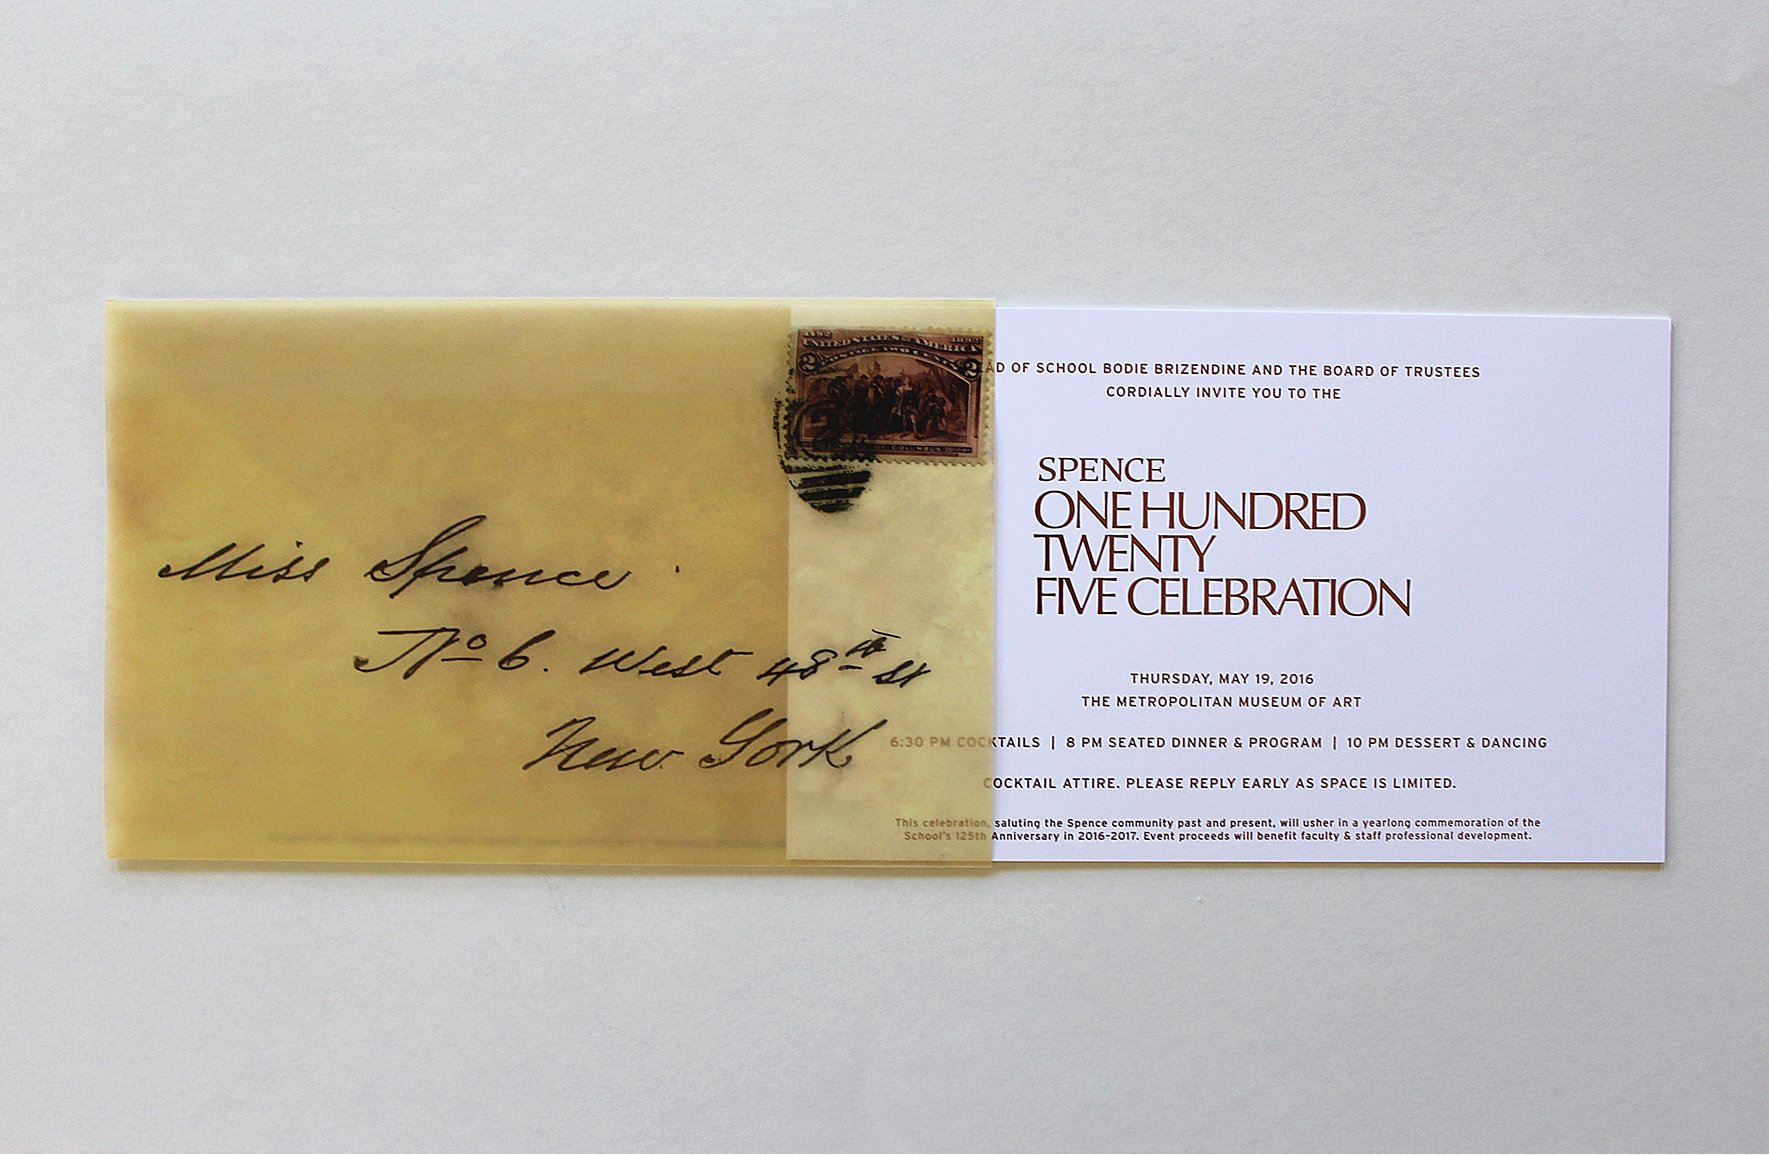 Miss Spence
No 6. West 48th St
New York
1492 1892
UNITED STATES OF AMERICA
POSTAGE TWO CENTS
2 2
OF COLUMBUS
AD OF SCHOOL BODIE BRIZENDINE AND THE BOARD OF TRUSTEES
CORDIALLY INVITE YOU TO THE
SPENCE
ONE HUNDRED
TWENTY
FIVE CELEBRATION
THURSDAY, MAY 19, 2016
THE METROPOLITAN MUSEUM OF ART
6:30 PM COCKTAILS | 8 PM SEATED DINNER & PROGRAM | 10 PM DESSERT & DANCING
COCKTAIL ATTIRE. PLEASE REPLY EARLY AS SPACE IS LIMITED.
This celebration, saluting the Spence community past and present, will usher in a yearlong commemoration of the
School's 125th Anniversary in 2016-2017. Event proceeds will benefit faculty & staff professional development.